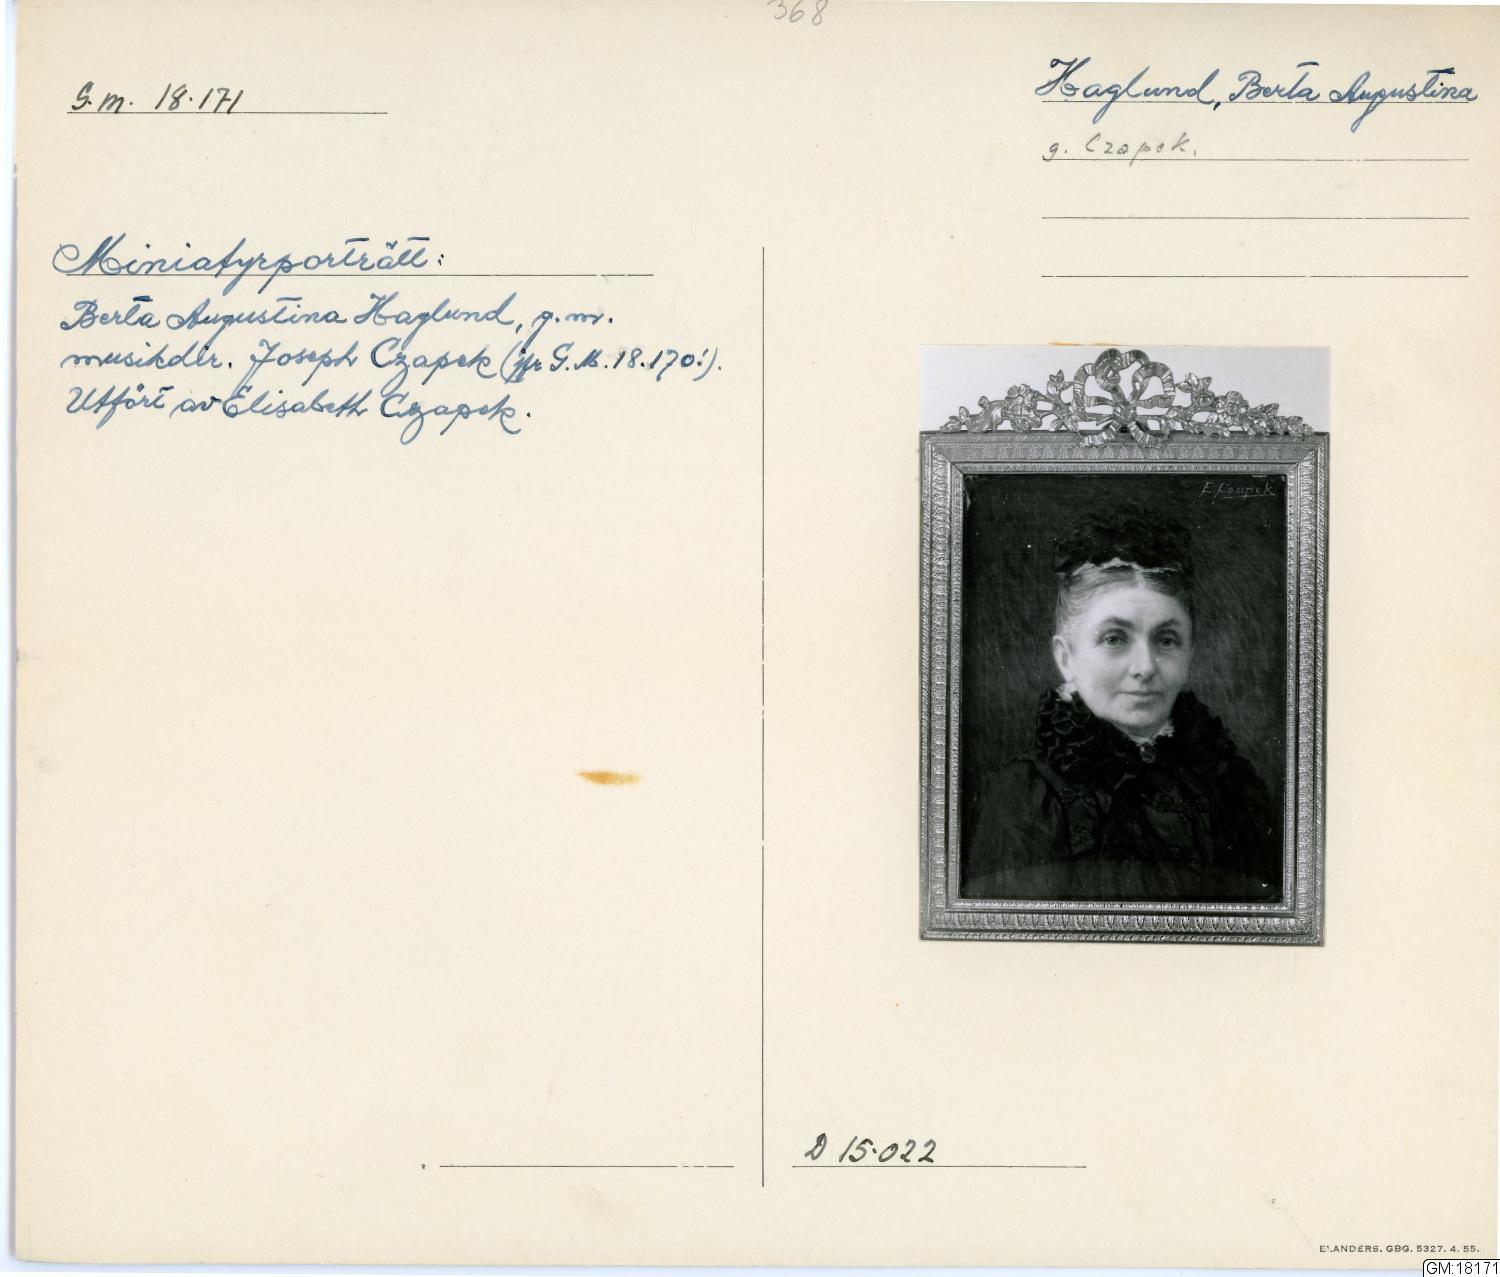 368
G.M. 18.171
Haglund, Berta Augustina
g. Czapek.
Miniatyrporträtt:
Berta Augustina Haglund, g.m.
musikdir. Joseph Czapek (jfr G.M. 18.170!).
Utfört av Elisabeth Czapek.
E. Czapek
D 15.022
ELANDERS, GBG. 5327. 4. 55.
GM:18171